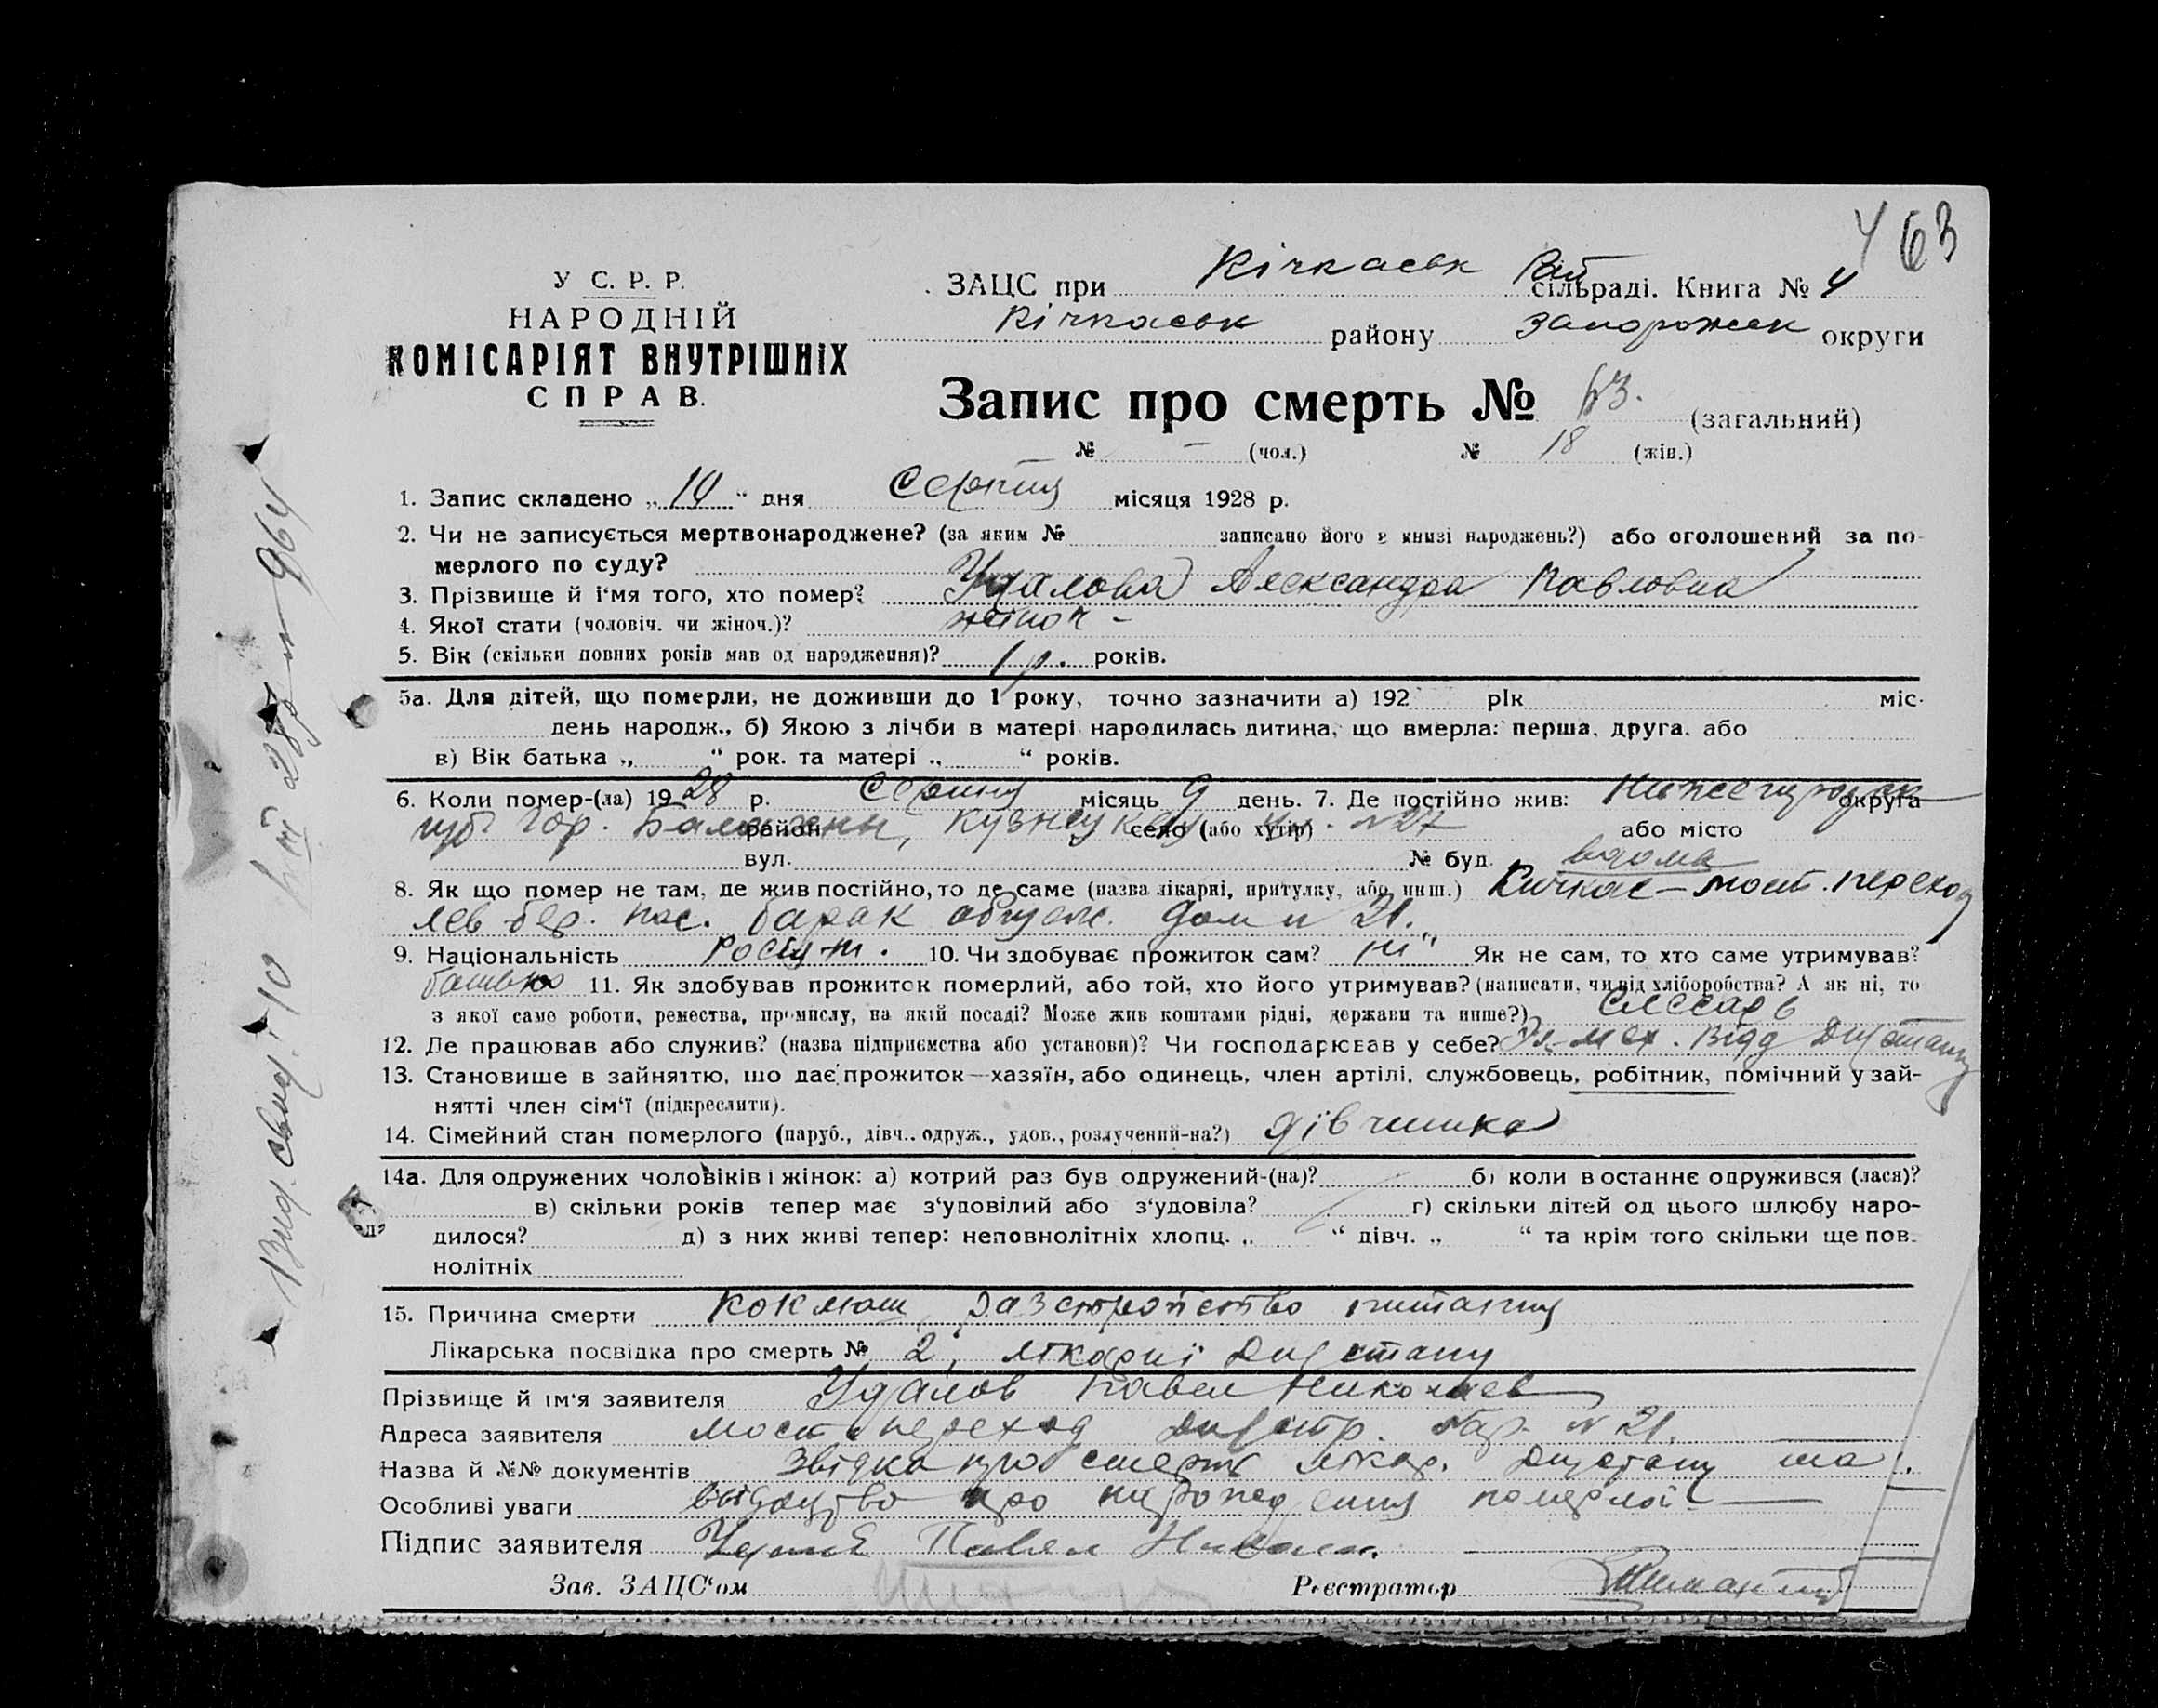 463
У С. Р. Р.
НАРОДНІЙ
КОМІСАРІЯТ ВНУТРІШНІХ
СПРАВ.
ЗАЦС при Кічкаськ Рай сільраді. Книга № 4
Кічкаськ району Запорожськ округи
Запис про смерть № 63. (загальний)
№ — (чол.) № 18 (жін.)
1. Запис складено „10“ дня Серпня місяця 1928 р.
2. Чи не записується мертвонароджене? (за яким № записано його в книзі народжень?) або оголошений за по-
мерлого по суду?
3. Прізвище й і‘мя того, хто помер? Удалова Александра Павловна
4. Якої стати (чоловіч. чи жіноч.)? жіноч -
5. Вік (скільки повних років мав од народження)? 1 р. років.
5а. Для дітей, що померли, не доживши до 1 року, точно зазначити а) 192 рік міс.
день народж., б) Якою з лічби в матері народилась дитина, що вмерла: перша, друга. або
в) Вік батька „ “ рок. та матері „ “ років.
6. Коли помер-(ла) 1928 р. Серпня місяць 9 день. 7. Де постійно жив: Нижегородск округа
губ гор. район село (або хутір) №27 або місто
вул. № буд. вдома
8. Як що помер не там, де жив постійно, то де саме (назва лікарні, притулку, або инш.) Кичкас – мост. переход
лев бер. пос. барак дом n 21.
9. Національність 10. Чи здобуває прожиток сам? ні Як не сам, то хто саме утримував?
батько 11. Як здобував прожиток померлий, або той, хто його утримував? (написати, чи від хліборобства? А як ні, то
з якої саме роботи, ремества, промислу, на якій посаді? Може жив коштами рідні, держави та инше?) слесарь
12. Де працював або служив? (назва підприємства або установи)? Чи господарював у себе? Ел-мех. Відд Дніпрстану
13. Становище в зайняттю, що дає прожиток—хазяїн, або одинець, член артілі, службовець, робітник, помічний у зай-
нятті член сім‘ї (підкреслити).
14. Сімейний стан померлого (паруб., дівч., одруж., удов., розлучений-на?) дівчинка
14а. Для одружених чоловіків і жінок: а) котрий раз був одружений-(на)? б) коли в останнє одружився (лася)?
в) скільки років тепер має з‘уповілий або з‘удовіла? г) скільки дітей од цього шлюбу наро-
дилося? д) з них живі тепер: неповнолітніх хлопц. „ “ дівч. „ “ та крім того скільки ще пов-
нолітніх
15. Причина смерти Коклюш, разстройство питания
Лікарська посвідка про смерть № 2, лікарні Дніпрстану
Прізвище й ім‘я заявителя Удалов Павел Николаев
Адреса заявителя мост переход бар. № 21.
Назва й №№ документів Звідка про смерть лікар. Дніпрстану та
Особливі уваги про народження померлої
Підпис заявителя Павел
Зав. ЗАЦС‘ом Реєстратор